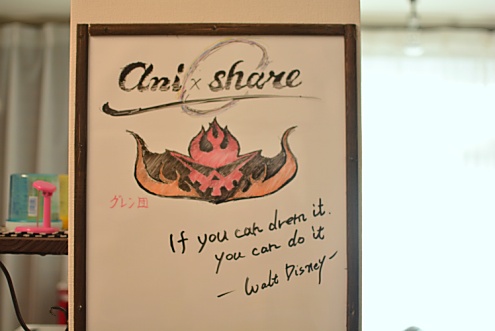 ani × share
グレン団
If you can drem it.
you can do it
- Walt Disney -